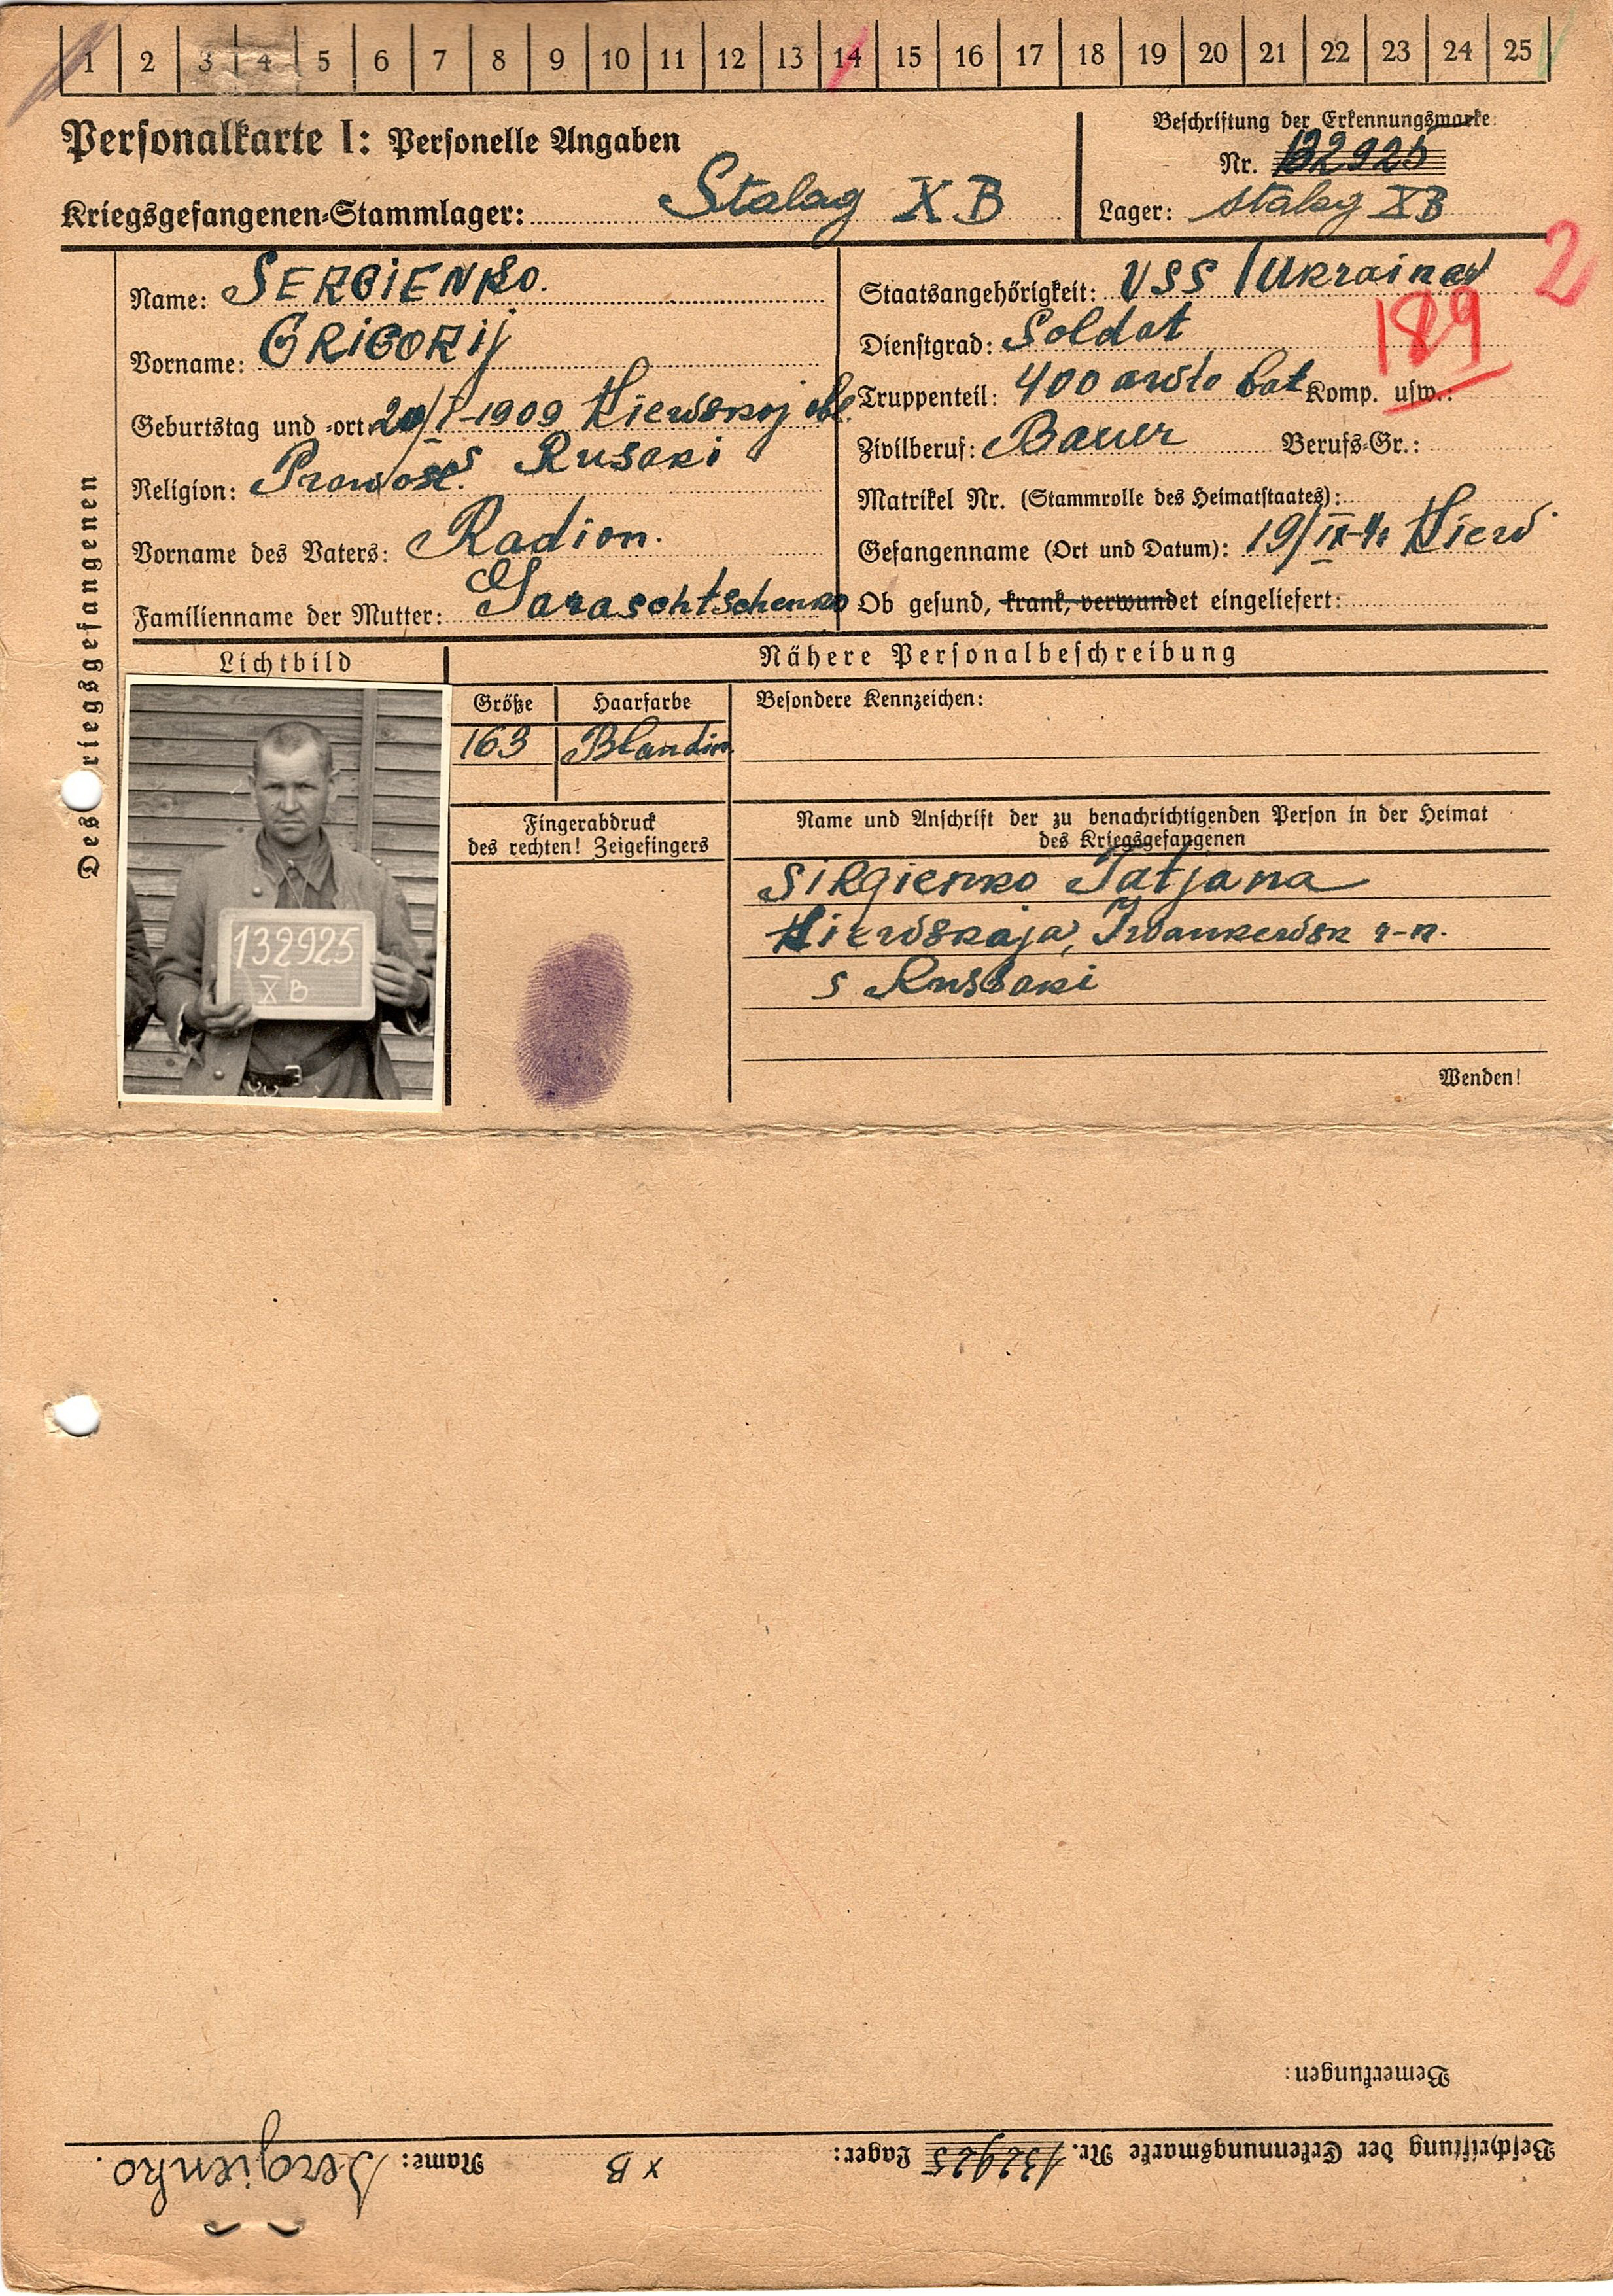 1 2 3 4 5 6 7 8 9 10 11 12 13 14 15 16 17 18 19 20 21 22 23 24 25
Personalkarte I: Personelle Angaben
Kriegsgefangenen-Stammlager: Stalag X B
Beschriftung der Erkennungsmarke:
Nr. 132925
Lager: Stalag XB
2
189
Des Kriegsgefangenen
Name: SERGIENKO.
Vorname: GRIGORIJ
Geburtstag und -ort: 20/I-1909 Kiewskoj obl.
s Rusaki
Religion: Prawosl.
Vorname des Vaters: Radion.
Familienname der Mutter: Garaschtschenko
Staatsangehörigkeit: USS / Ukrainer
Dienstgrad: Soldat
Truppenteil: 400 awto bat Komp. usw.:
Zivilberuf: Bauer Berufs-Gr.:
Matrikel Nr. (Stammrolle des Heimatstaates):
Gefangenname (Ort und Datum): 19/IX-41 Kiew
Ob gesund, krank, verwundet eingeliefert:
Lichtbild
Nähere Personalbeschreibung
Größe Haarfarbe Besondere Kennzeichen:
163 Blandin
132925
X B
Fingerabdruck
des rechten! Zeigefingers
Name und Anschrift der zu benachrichtigenden Person in der Heimat
des Kriegsgefangenen
SiRgienko Tatjana
Kiewskaja, Iwankewsk r-n.
s Russaki
Wenden!
Bemerkungen:
Beschriftung der Erkennungsmarke Nr. 132925 Lager: X B Name: Sergienko.